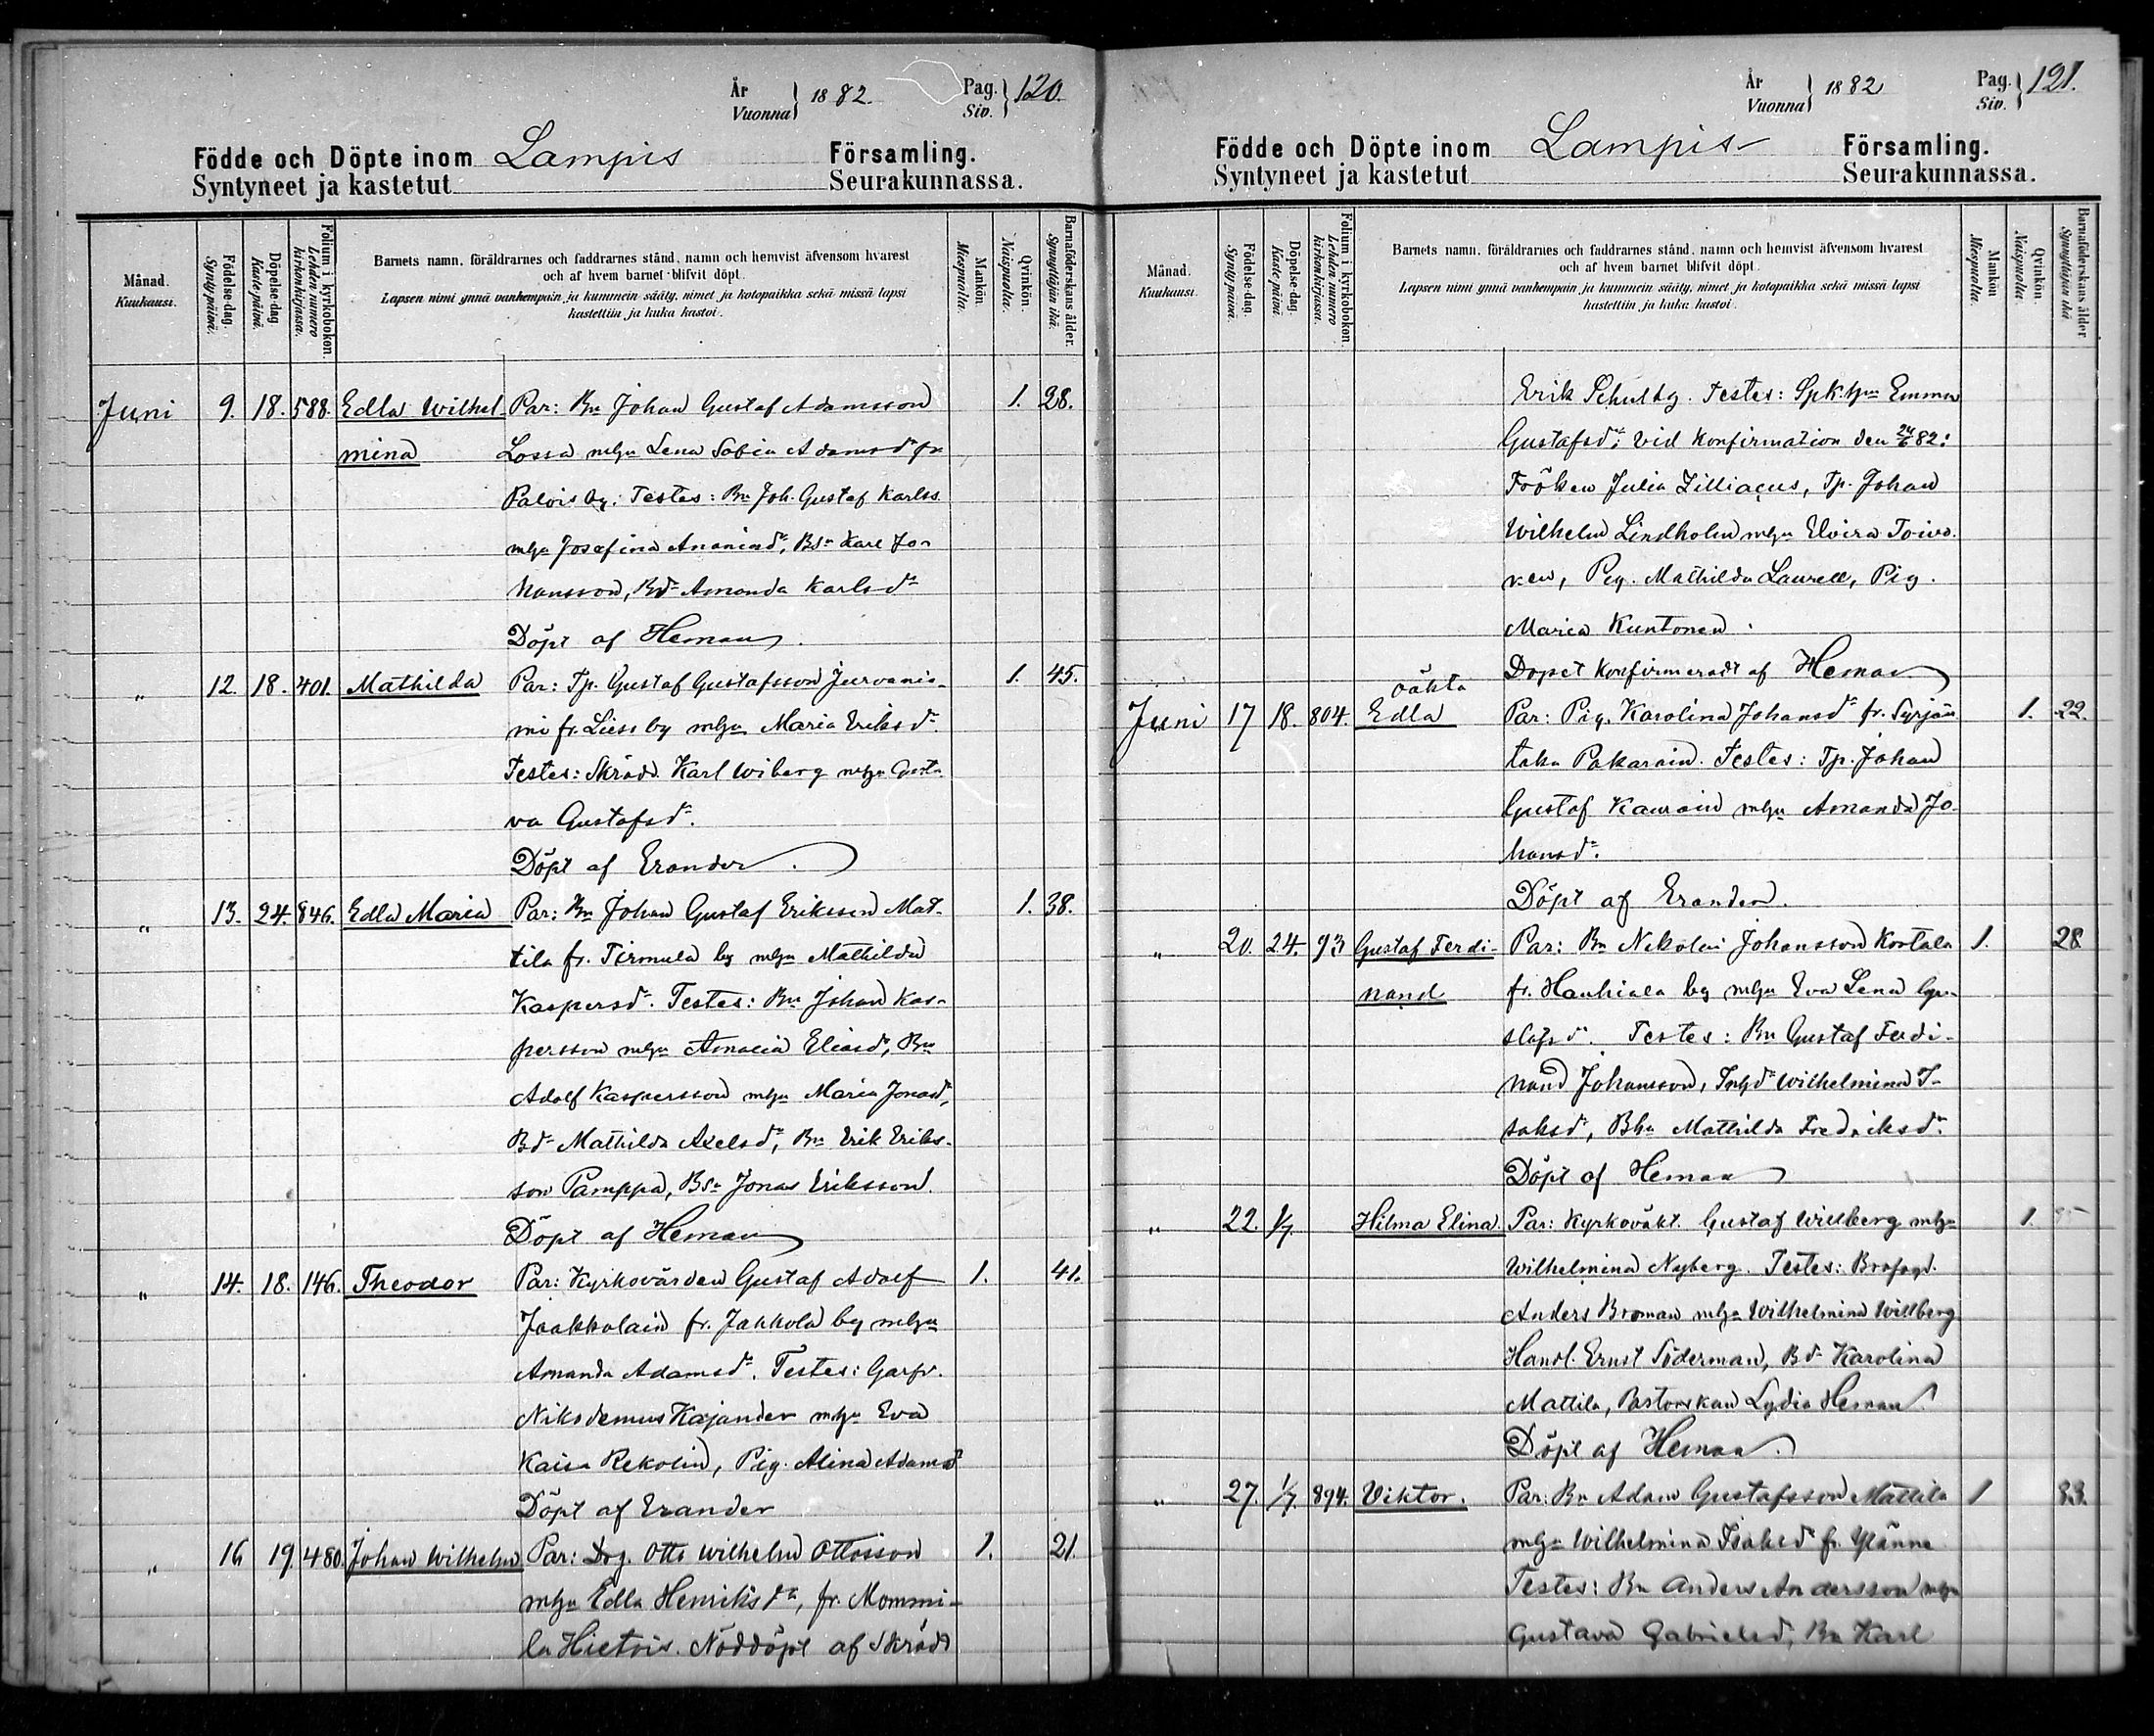 År
Vuonna
1882.
Pag.
Siv.
120.
Födde och Döpte inom Lampis Församling.
Syntyneet ja kastetut Seurakunnassa.
Månad.
Kuukausi.
Födelse-dag.
Syntypäivä.
Döpelse-dag
Kaste-päivä.
Folium i kyrkobokon.
Lehden numero
kirkonkirjassa.
Barnets namn, föräldrarnes och faddrarnes stånd, namn och hemvist äfvensom hvarest
och af hvem barnet blifvit döpt.
Lapsen nimi ynnä vanhempain ja kummein sääty, nimet ja kotopaikka sekä missä lapsi
kastettiin ja kuka kastoi.
Mankön.
Miespuolta.
Qvinkön.
Naispuolta.
Barnaföderskans ålder.
Synnyttäjän ikä.
Juni 9. 18. 588. Edla Wilhel Par: Bn Johan Gustaf Adamsson 1. 28.
mina Lossa mhu Lena Sofia Adamsdr fr
Palois by. Testes: Bn Joh. Gustaf Karlss.
mhu Josefina Ananiadr, Bsn Karl Jo-
hansson, Bdr Amanda Karlsdr
Döpt af Heman
" 12. 18. 401. Mathilda Par: Tp. Gustaf Gustafsson Jurvanie- 1. 45.
mi fr. Lieso by mhu Maria Eriksdr.
Testes: Skrädd. Karl Wiberg mhu Gusta-
va Gustafsdr.
Döpt af Erander.
" 13. 24. 846. Edla Maria Par: Bn Johan Gustaf Eriksson Mat- 1. 38.
tila fr. Tirmula by mhu Mathilda
Kaspersdr. Testes: Bn Johan Kas-
persson mhu Amalia Eliasdr, Bn
Adolf Kaspersson mhu Maria Jonasdr,
Bdr Mathilda Axelsdr, Bn Erik Eriks-
son Pamppa, Bsn Jonas Eriksson.
Döpt af Heman
" 14. 18. 146. Theodor Par: Kyrkovärden Gustaf Adolf 1. 41.
Jaakkolain fr. Jahkola by mhu
Amanda Adamsdr. Testes: Garfv.
Nikodemus Kajander mhu Eva
Kaisa Rekolin, Pig. Alina Adamsdr
Döpt af Erander
" 16 19. 480. Johan Wilhelm Par: Drg. Otto Wilhelm Ottosson 1. 21.
mhu Edla Henriksdr, fr. Mommi-
la Hietois. Nöddöpt af Skrädd
År
Vuonna
1882
Pag.
Siv.
121.
Födde och Döpte inom Lampis Församling.
Syntyneet ja kastetut Seurakunnassa.
Månad.
Kuukausi.
Födelse-dag.
Syntypäivä.
Döpelse-dag.
Kaste-päivä.
Folium i kyrkobokon.
Lehden numero
kirkonkirjassa.
Barnets namn, föräldrarnes och faddrarnes stånd, namn och hemvist äfvensom hvarest
och af hvem barnet blifvit döpt.
Lapsen nimi ynnä vanhempain ja kummein sääty, nimet ja kotopaikka sekä missä lapsi
kastettiin ja kuka kastoi.
Mankön
Miespuolta.
Qvinkön.
Naispuolta.
Barnaföderskans ålder
Synnyttäjän ikä.
Erik Schultz. Testes: Emma
Gustafsdr; vid Konfirmation den 24/6 82:
Fröken Julia Zilliacus, Tp. Johan
Wilhelm Lindholm mhu Elvira Toivo-
nen, Pig. Mathilda Laurell, Pig.
Maria Kuntonen.
Dopet konfirmeradt af Heman
oäkta
Juni 17 18. 804. Edla Par: Pig. Karolina Johansdr fr. Syrjän 1. 22.
taka Pakarain. Testes: Tp. Johan
Gustaf Kaurain mhu Amanda Jo-
hansdr.
Döpt af Erander.
" 20. 24. 93 Gustaf Ferdi- Par: Bn Nikolai Johansson Kortala 1. 28
nand fr. Hauhiala by mhu Eva Lena Gu-
stafsdr. Testes: Bn Gustaf Ferdi-
nand Johansson, Inhdr Wilhelmina I-
saksdr, Bhu Mathilda Fredriksdr.
Döpt af Heman
" 22. 1/7 Hilma Elina Par: Kyrkovakt. Gustaf Willberg mhu 1.
Wilhelmina Nyberg. Testes: Brofogd.
Anders Broman mhu Wilhelmina Willberg
Handl. Ernst Söderman, Bdr Karolina
Mattila, Pastorskan Lydia Heman.
Döpt af Heman.
" 27. 1/7 894. Viktor. Par: Bn Adam Gustafsson Mattila 1 33.
mhu Wilhelmina Isaksdr fr.
Testes: Bn Anders Andersson mhu
Gustava Gabrielsdr, Bn Karl